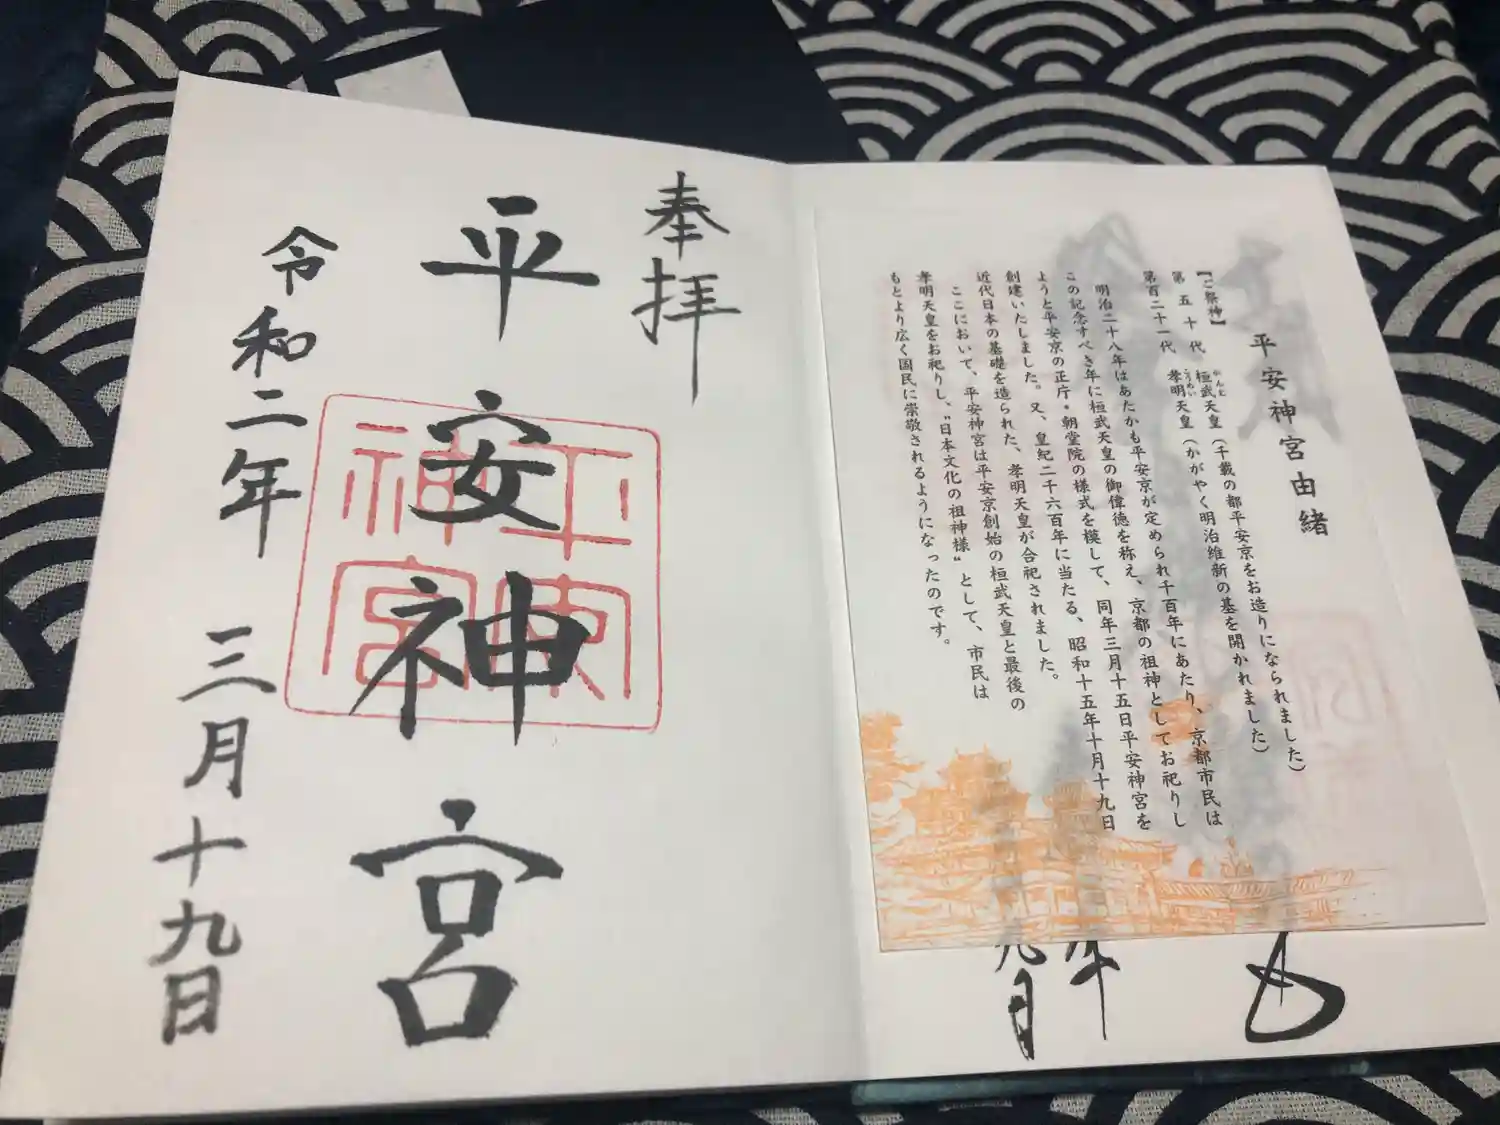 平安神宮由緒
【ご祭神】
第五十代 桓武天皇（千載の都平安京をお造りになられました）
第百二十一代 孝明天皇（かがやく明治維新の基を開かれました）
明治二十八年はあたかも平安京が定められ千百年にあたり、京都市民は
この記念すべき年に桓武天皇の御偉徳を称え、京都の祖神としてお祀りし
ようと平安京の正庁・朝堂院の様式を模して、同年三月十五日平安神宮を
創建いたしました。又、皇紀二千六百年に当たる、昭和十五年十月十九日
近代日本の基礎を造られた、孝明天皇が合祀されました。
ここにおいて、平安神宮は平安京創始の桓武天皇と最後の
孝明天皇をお祀りし、"日本文化の祖神様"として、市民は
もとより広く国民に崇敬されるようになったのです。
奉拝
平安神宮
平安神宮
令和二年 三月十九日